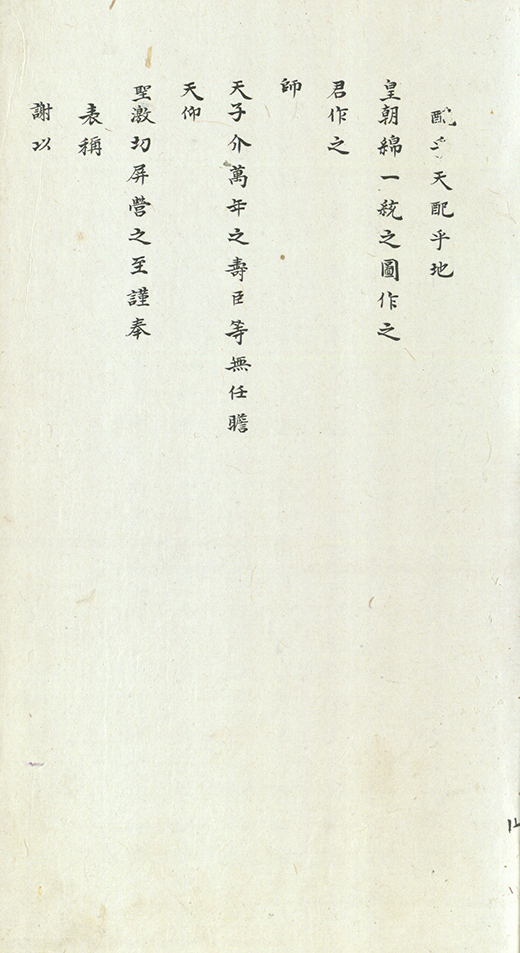 配乎天配乎地
皇朝綿一統之圖作之
君作之
師
天子介萬年之壽臣等無任瞻
天仰
聖激切屏營之至謹奉
表稱
謝以